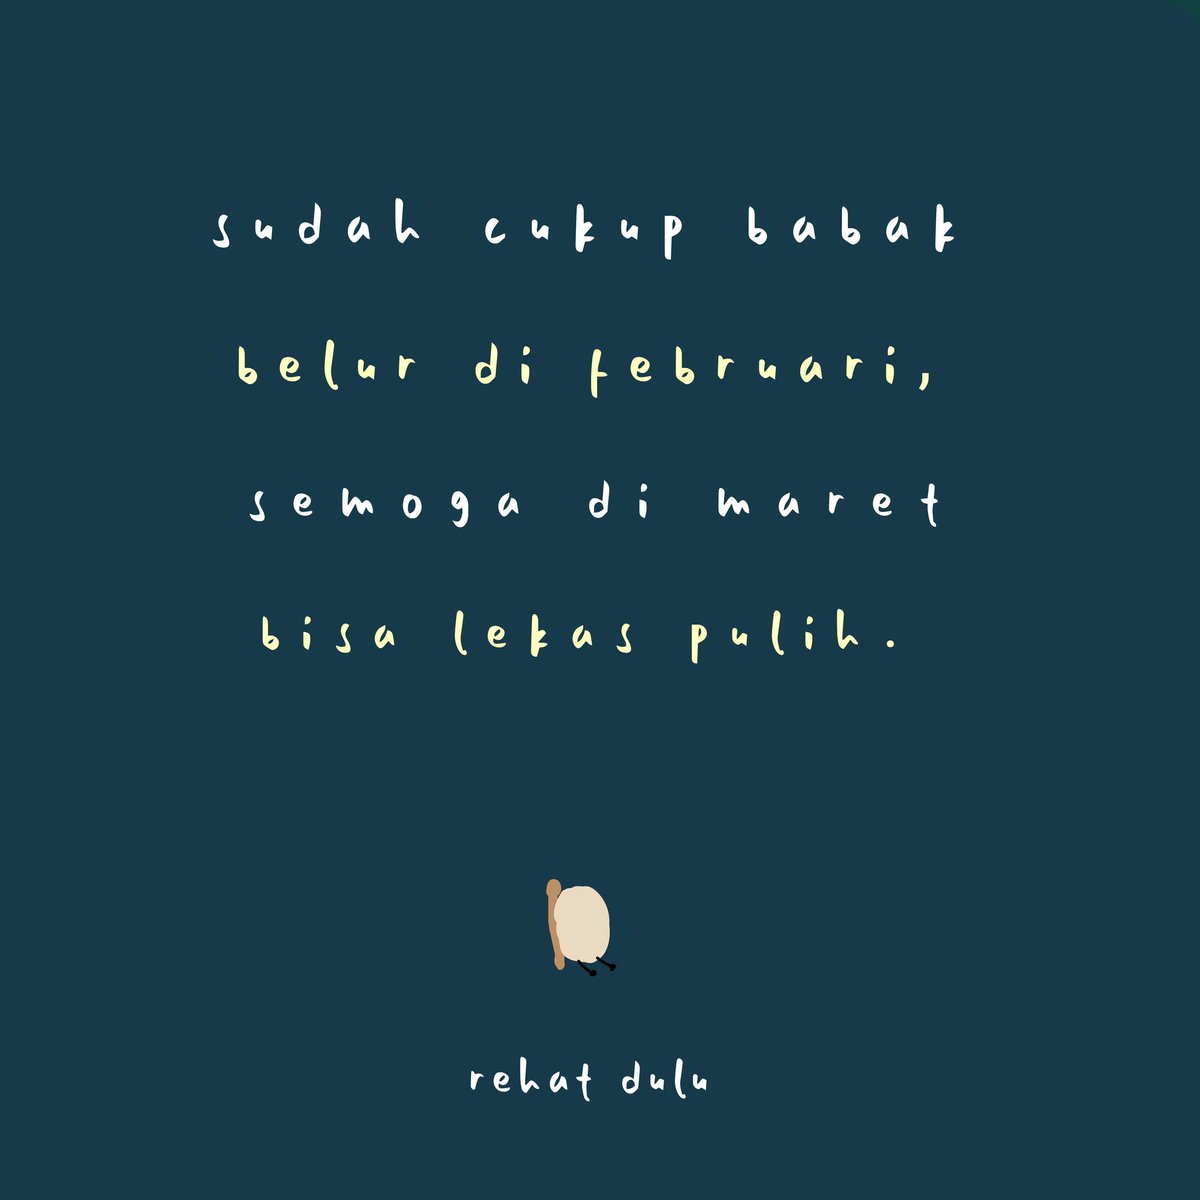 sudah cukup babak
belur di februari,
semoga di maret
bisa lekas pulih.
rehat dulu